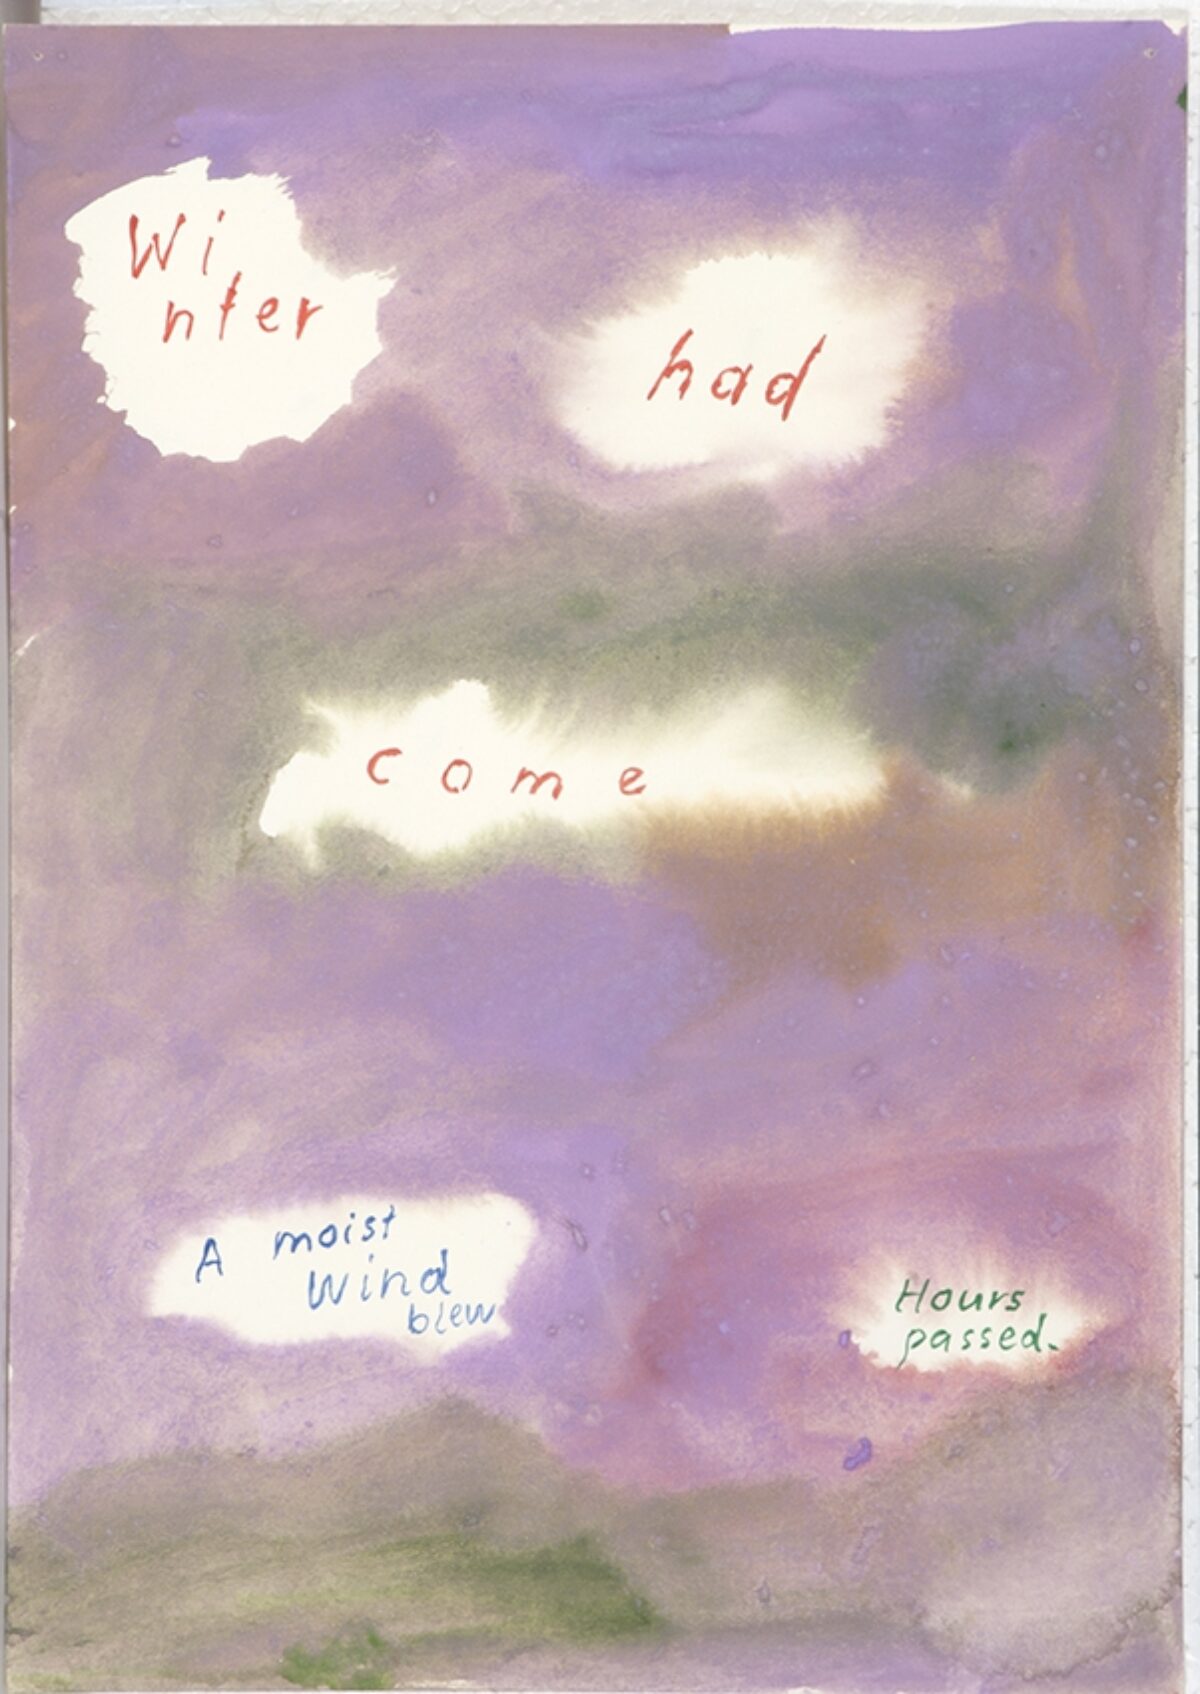 Wi
nter
had
come
A moist
wind
blew
Hours
passed.